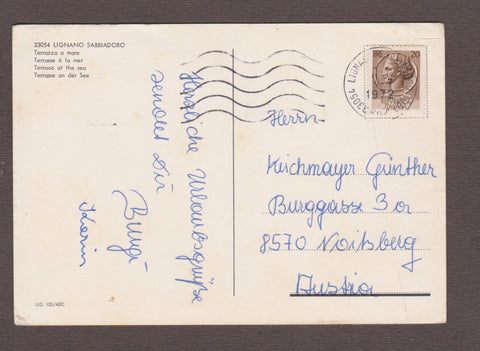 33054 LIGNANO SABBIADORO
Terrazza a mare
Terrasse à la mer
Terrace at the sea
Terrasse an der See
Herzliche Urlaubsgrüße
sendet Dir
Burgi
Karin
LIG 125/430
1972
33054 LIGNANO
Herrn
Reichmayer Günther
Burggasse 3a
8570 Voitsberg
Austria